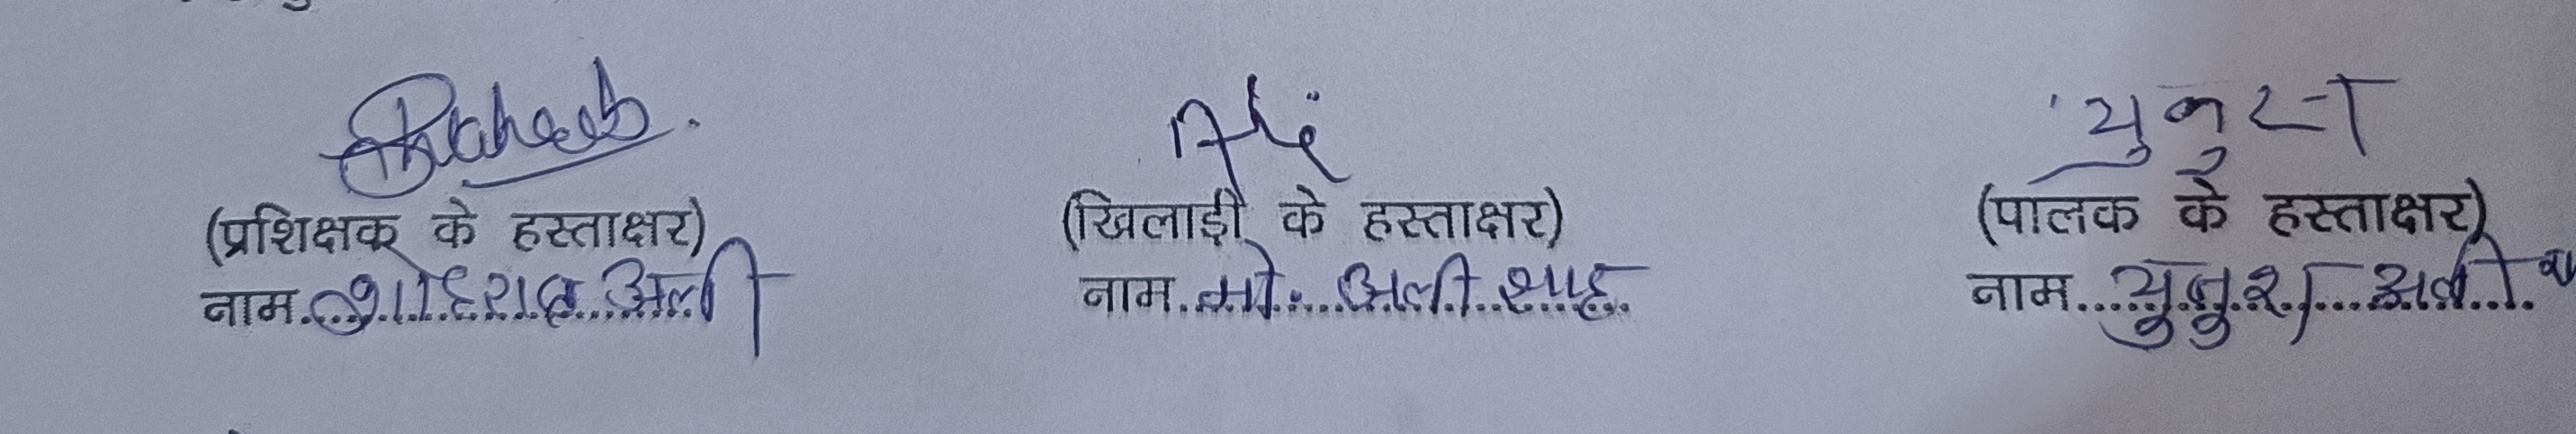 युनुस
(प्रशिक्षक के हस्ताक्षर) (खिलाड़ी के हस्ताक्षर) (पालक के हस्ताक्षर)
नाम. अली नाम. मो. अली शाह नाम. युनुश अली